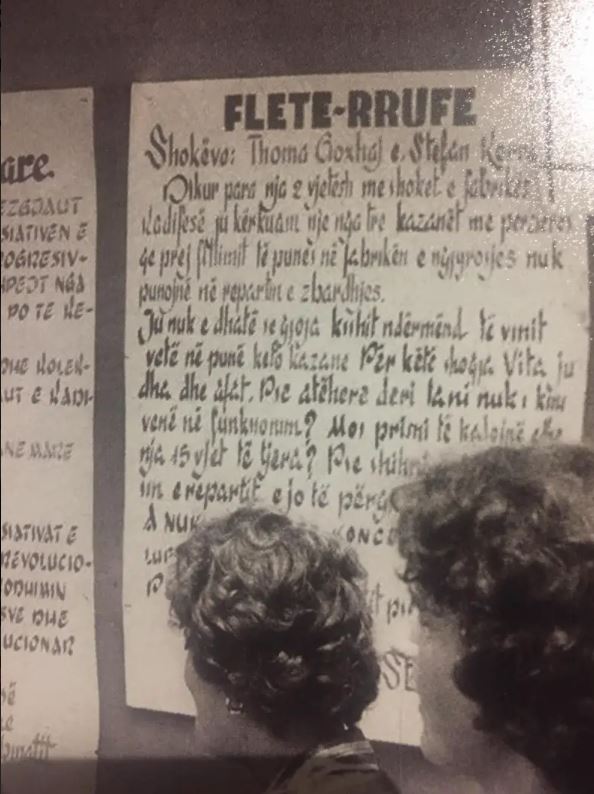 are.
EZGJAUT
SIATIVEN E
OGRESIV-
HPEJT NGA
DO TE KE-
DHE KOLEK-
AUT E KADI-
NE MARE
SIATIVAT E
REVOLUCIO-
ODHIMIN
SVE DHE
UCIONAR
SË
FLETE-RRUFE
Shokëve: Thoma Goxhaj e. Stefan
Dikur para nja 2 vjetësh me shokët e fabrikës
Kadifesë ju kërkuam një nga tre kazanët me përzierës
qe prej fillimit të punës në fabrikën e ngjyrosjes nuk
punojnë në repartin e zbardhjes.
Ju nuk e dhatë se gjoja kishit ndërmend të vinit
vetë në punë keto kazane Për këtë shoqja Vita ju
dha dhe afat. Pse atëhere deri tani nuk i kini
venë në funksionim? Mos prisni të kalojnë edhe
nja 15 vjet të tjera? Pse shihni
in e repartit e jo të përg
A NUK KONCE
LUF
P